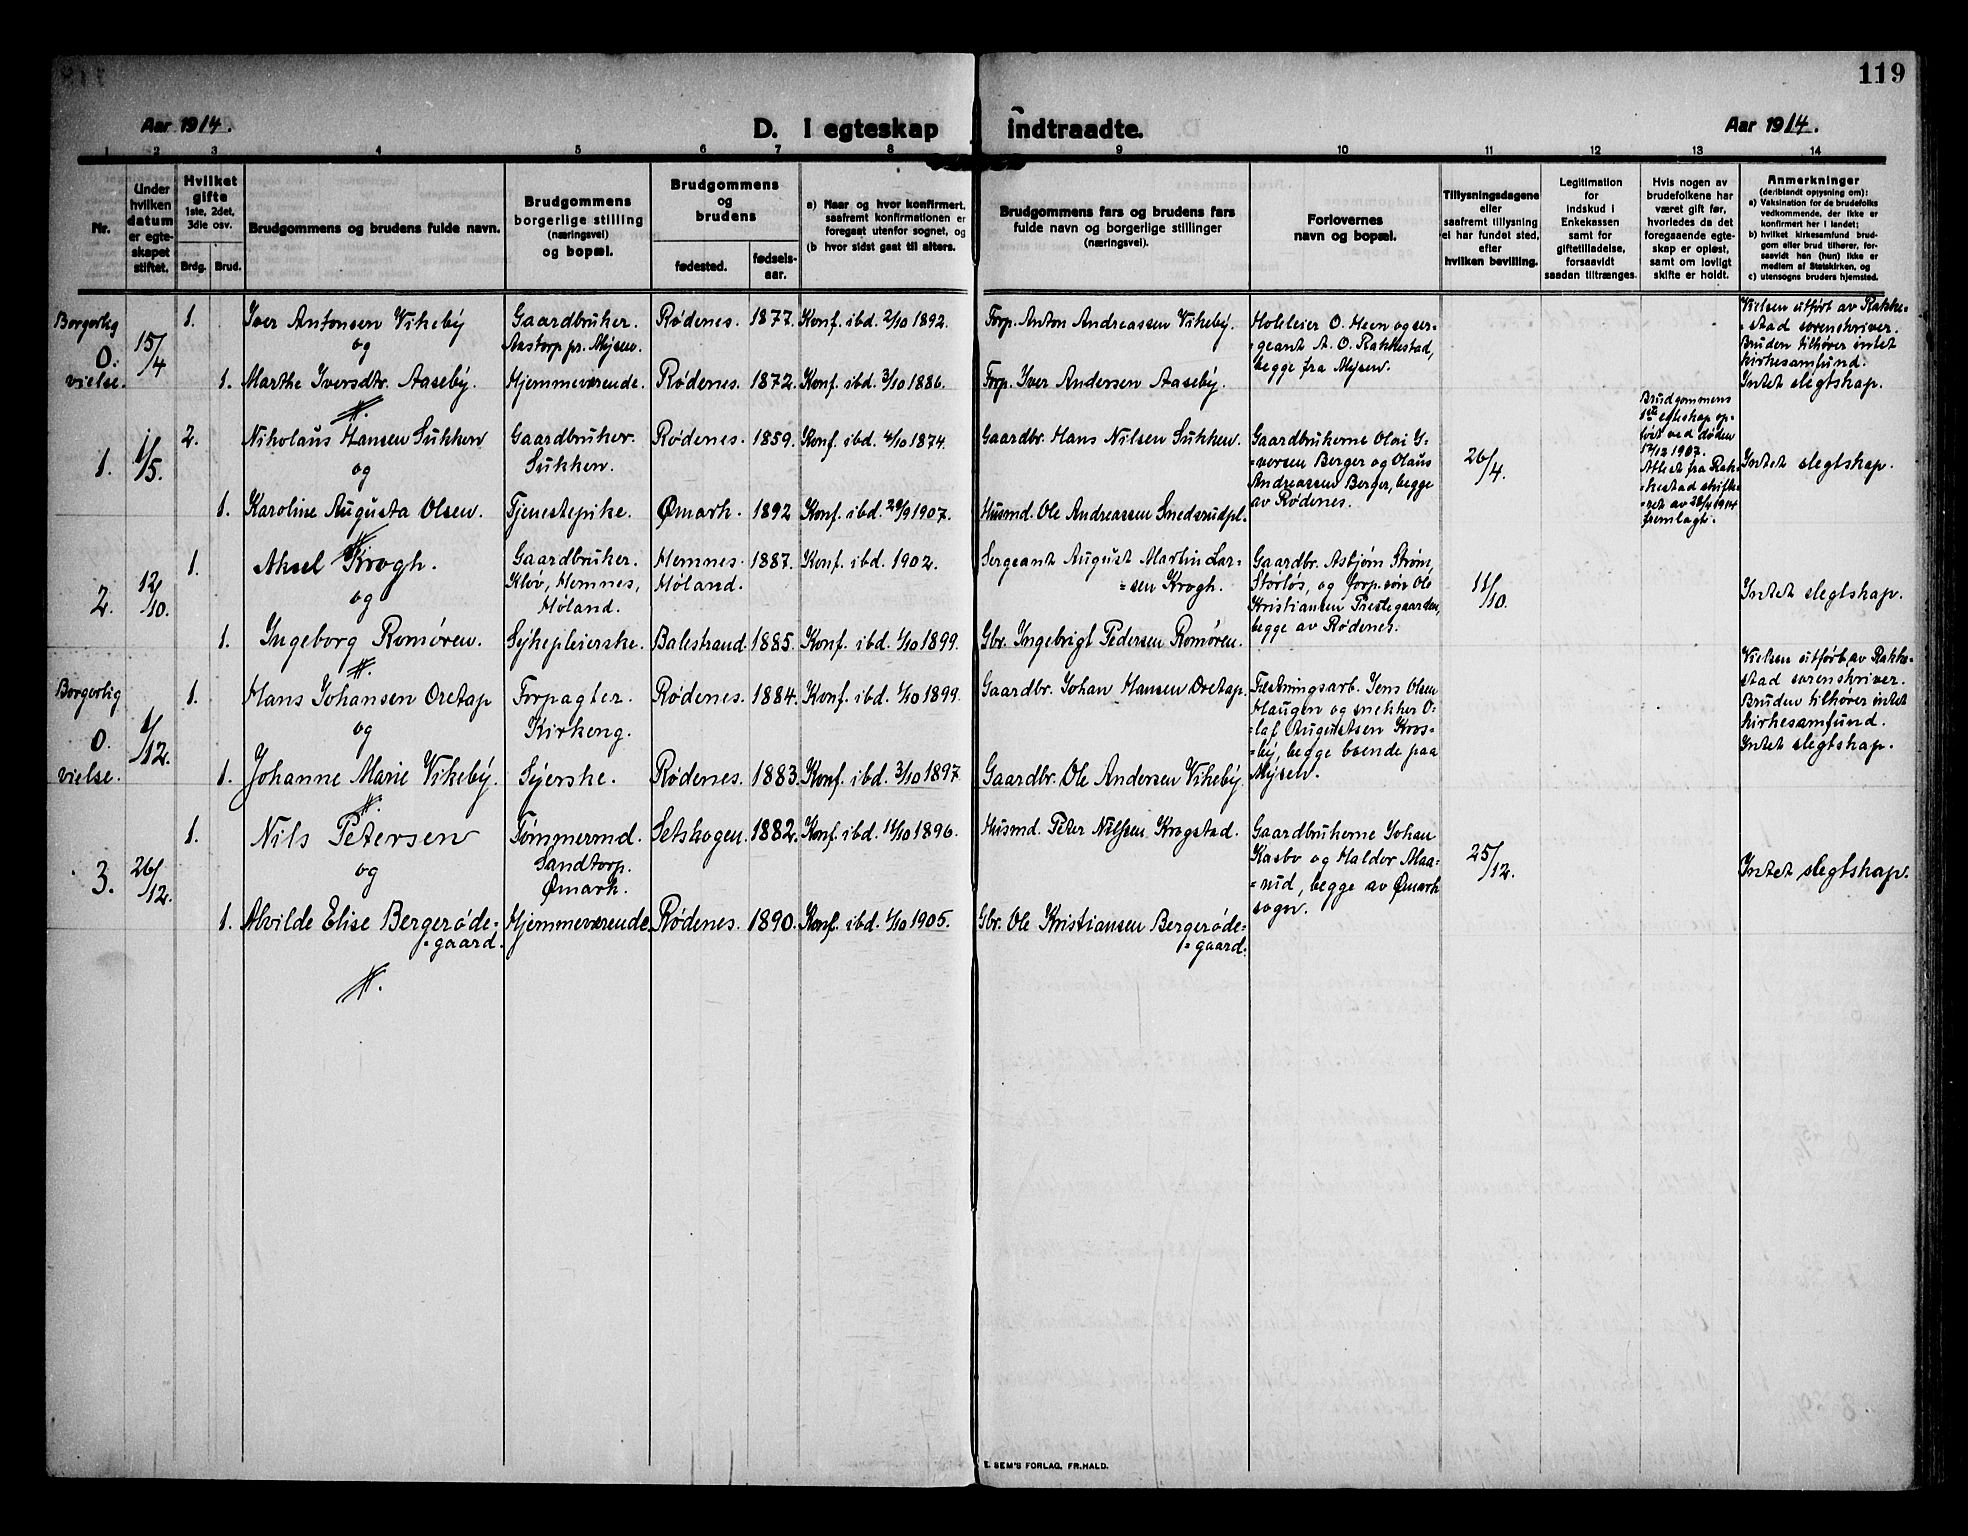 119
Aar 1914.
D. I egteskap indtraadte.
Aar 1914.
1 2 3 4 5 6 7 8 9 10 11 12 13 14
Nr.
Under hvilken datum er egte-skapet stiftet.
Hvilket gifte
1ste, 2det, 3die osv.
Brdg. Brud.
Brudgommens og brudens fulde navn.
Brudgommens borgerlige stilling (næringsvei) og bopæl.
Brudgommens og brudens
fødested.
fødsels-aar.
a) Naar og hvor konfirmert, saafremt konfirmationen er foregaat utenfor sognet, og
(b hvor sidst gaat til alters.
Brudgommens fars og brudens fars fulde navn og borgerlige stillinger (næringsvei).
Forlovernes navn og bopæl.
Tillysningsdagene eller saafremt tillysning ei har fundet sted, efter hvilken bevilling.
Legitimation for indskud i Enkekassen samt for giftetilladelse, forsaavidt saadan tiltrænges.
Hvis nogen av brudefolkene har været gift før, hvorledes da det foregaaende egte-skap er opløst, samt om lovligt skifte er holdt.
Anmerkninger (deriblandt oplysning om):
a) Vaksination for de brudefolks vedkommende, der ikke er konfirmert her i landet;
b) hvilket kirkesamfund brud-gom eller brud tilhører, for-saavidt han (hun) ikke er medlem af Statskirken, og
c) utensogns bruders hjemsted.
Borgerlig 0. vielse.
15/4
1.
Iver Antonsen Vikeby
og
Gaardbruker.
Aastorp pr. Mysen.
Rødenes. 1877. Konf. ibd. 2/10 1892.
Forp. Anton Andreassen Vikeby.
Hoteleier O. Heen og ser-
=geant A. O. Rakkestad,
begge fra Mysen.
Vielsen utført av Rakke-
=stad sorenskriver.
Bruden tilhører intet
kirkesamfund.
Intet slegtskap.
1. Marthe Iversdtr. Aaseby. Hjemmeværende. Rødenes. 1872. Konf. ibd. 3/10 1886.
Forp. Iver Andersen Aaseby.
1.
1/5.
2.
Nikolaus Hansen Sukken
og
Gaardbruker.
Sukken.
Rødenes. 1859. Konf. ibd. 4/10 1874.
Gaardbr. Hans Nilsen Sukken.
Gaardbrukerne Olori I-
=versen Berger og Olaus
Andreassen Berger, begge
av Rødenes.
26/4.
Brudgommens
1ste egteskap op-
løst ved døden
12/12 1907.
Attest fra Rak-
=kestad skifte-
=ret av 28/4 1914
fremlagt.
Intet slegtskap.
1. Karoline Augusta Olsen. Tjenestepike. Ømark. 1892 Konf. ibd. 29/9 1907.
Husmd. Ole Andreassen Snedsrudpl.
2.
12/10.
1.
Aksel Krogh.
og
Gaardbruker.
Kløv, Hemnes,
Høland.
Hemnes,
Høland.
1887. Konf. ibd. 1902.
Sergeant August Martin Lar-
=sen Krogh.
Gaardbr. Asbjørn Strøm,
Storløs, og forp.søn Ole
Kristiansen Prestegaarden,
begge av Rødenes.
11/10.
Intet slegtskap.
1. Ingeborg Romøren. Sykepleierske. Balestrand. 1885. Konf. ibd. 1/10 1899.
Gbr. Ingebrigt Pedersen Romøren.
Borgerlig 0. vielse.
1/12.
1.
Hans Johansen Oretap
og
Forpagter.
Kirkeng.
Rødenes. 1884. Konf. ibd. 1/10 1899.
Gaardbr. Johan Hansen Oretap.
Fæstningsarb. Jens Olsen
Haugen og snekker O-
=laf Augustsen Kros-
=by, begge boende paa
Mysen.
Vielsen utført av Rakke-
stad sorenskriver.
Bruden tilhører intet
kirkesamfund.
Intet slegtskap.
1. Johanne Marie Vikeby. Syerske. Rødenes. 1883. Konf. ibd. 3/10 1897.
Gaardbr. Ole Andersen Vikeby.
3.
26/12.
1.
Nils Petersen
og
Tømmermd.
Sandtorp.
Ømark.
Setskogen. 1882. Konf. ibd. 11/10 1896.
Husmd. Peter Nilssen Krogstad.
Gaardbrukerne Johan
Kasbo og Haldor Maa-
=rud, begge av Ømark
sogn.
25/12.
Intet slegtskap.
1. Alvilde Elise Bergerøde-
=gaard.
Hjemmeværende. Rødenes. 1890. Konf. ibd. 1/10 1905.
Gbr. Ole Kristiansen Bergerøde-
=gaard.
E. SEM'S FORLAG, FR.HALD.